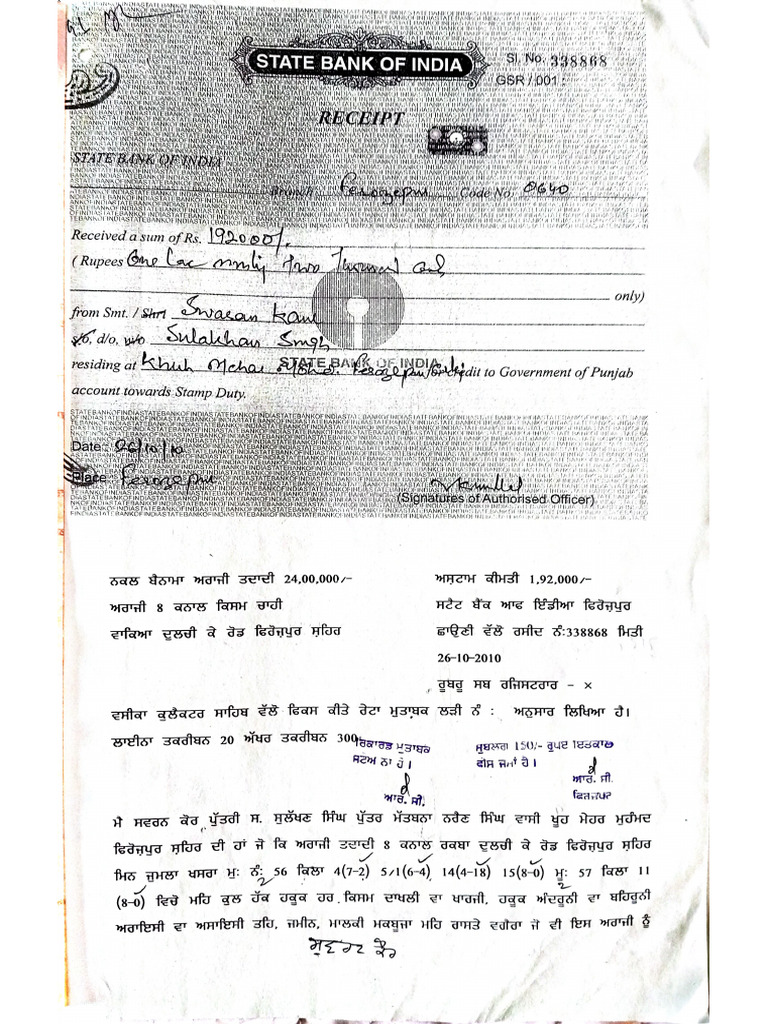 STATE BANK OF INDIA
Sl. No. 338868
GSR / 001
RECEIPT
STATE BANK OF INDIA
Branch Ferozepur Code No. 0640
Received a sum of Rs. 192000/-
( Rupees One Lac Ninty Two Thousand only
only)
from Smt. / Shri Swaran Kaur
s/o, d/o, w/o Sulakhan Singh
STATE BANK OF INDIA
residing at Khuh Mehar Mohd. Ferozepur City for credit to Government of Punjab
account towards Stamp Duty.
Date : 26/10/10
Place : Ferozepur
(Signatures of Authorised Officer)
ਨਕਲ ਬੈਨਾਮਾ ਅਰਾਜੀ ਤਦਾਦੀ 24,00,000/-
ਅਰਾਜੀ 8 ਕਨਾਲ ਕਿਸਮ ਚਾਹੀ
ਵਾਕਿਆ ਦੁਲਚੀ ਕੇ ਰੋਡ ਫਿਰੋਜ਼ਪੁਰ ਸ਼ਹਿਰ
ਅਸ਼ਟਾਮ ਕੀਮਤੀ 1,92,000/-
ਸਟੈਟ ਬੈਂਕ ਆਫ ਇੰਡੀਆ ਫਿਰੋਜ਼ਪੁਰ
ਛਾਉਣੀ ਵੱਲੋ ਰਸੀਦ ਨੰ:338868 ਮਿਤੀ
26-10-2010
ਰੂਬਰੂ ਸਬ ਰਜਿਸਟਰਾਰ - ×
ਵਸੀਕਾ ਕੁਲੈਕਟਰ ਸਾਹਿਬ ਵੱਲੋ ਫਿਕਸ ਕੀਤੇ ਰੇਟਾ ਮੁਤਾਬਕ ਲੜੀ ਨੰ : ਅਨੁਸਾਰ ਲਿਖਿਆ ਹੈ।
ਲਾਈਨਾ ਤਕਰੀਬਨ 20 ਅੱਖਰ ਤਕਰੀਬਨ 300
ਰਿਕਾਰਡ ਮੁਤਾਬਕ
ਸਟੇਅ ਨਾ ਹੈ।
ਆਰ. ਸੀ.
ਮੁਬਲਗ 150/- ਰੁਪਏ ਇੰਤਕਾਲ
ਫੀਸ ਜਮਾਂ ਹੈ।
ਆਰ. ਸੀ.
ਫਿਰੋਜਪੁਰ
ਮੈ ਸਵਰਨ ਕੋਰ ਪੁੱਤਰੀ ਸ. ਸੁਲੱਖਣ ਸਿੰਘ ਪੁੱਤਰ ਮੱਤਬਨਾ ਨਰੈਣ ਸਿੰਘ ਵਾਸੀ ਖੂਹ ਮੇਹਰ ਮੁਹੰਮਦ
ਫਿਰੋਜ਼ਪੁਰ ਸ਼ਹਿਰ ਦੀ ਹਾਂ ਜੋ ਕਿ ਅਰਾਜੀ ਤਦਾਦੀ 8 ਕਨਾਲ ਰਕਬਾ ਦੁਲਚੀ ਕੇ ਰੋਡ ਫਿਰੋਜ਼ਪੁਰ ਸ਼ਹਿਰ
ਮਿਨ ਜੁਮਲਾ ਖਸਰਾ ਮੁ: ਨੰ: 56 ਕਿਲਾ 4(7-2) 5/1(6-4) 14(4-18) 15(8-0) ਮੂ: 57 ਕਿਲਾ 11
(8-0) ਵਿਚੋ ਮਹਿ ਕੁਲ ਹੱਕ ਹਕੂਕ ਹਰ ਕਿਸਮ ਦਾਖਲੀ ਵਾ ਖਾਰਜੀ, ਹਕੂਕ ਅੰਦਰੂਨੀ ਵਾ ਬਹਿਰੂਨੀ
ਅਰਾਇਸੀ ਵਾ ਅਸਾਇਸੀ ਤਹਿ, ਜਮੀਨ, ਮਾਲਕੀ ਮਕਬੂਜਾ ਮਹਿ ਰਾਸਤੇ ਵਗੈਰਾ ਜੋ ਵੀ ਇਸ ਅਰਾਜੀ ਨੂੰ
ਸੁਵਰਨ ਕੌਰ